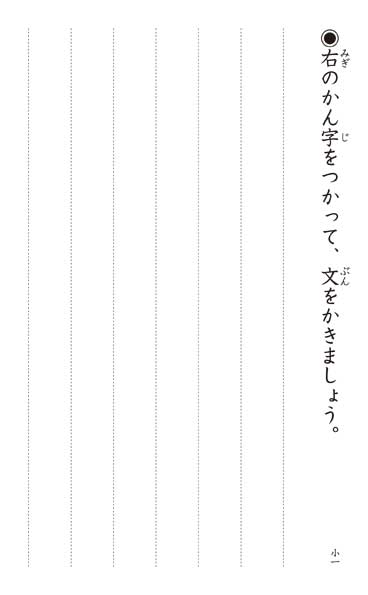 ◉右のかん字をつかって、文をかきましょう。
みぎ
じ
ぶん
小一